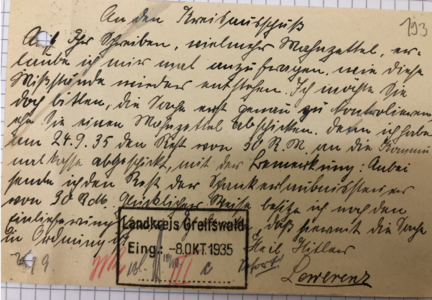 An den Kreisausschuß
193
Auf Ihr Schreiben, vielmehr Mahnzettel, er-
laube ich mir mal anzufragen, wie diese
Mißstände wieder entstehen. Ich möchte Sie
doch bitten, die Sache erst genau zu kontrolieren
ehe Sie einen Mahnzettel abschicken. denn ich habe
am 24.9.35 den Rest von 30 R.M. an die Kommu
nalkasse abgeschickt, mit der Bemerkung: Anbei
sende ich den Rest der Schankerlaubnissteuer
von 30 RM. Glücklicher Weise besitze ich noch den
Einlieferung daß soweit die Sache
in Ordnung
Landkreis Greifswald
Eing.: -8.OKT.1935
Heil Hitler
Lewerenz